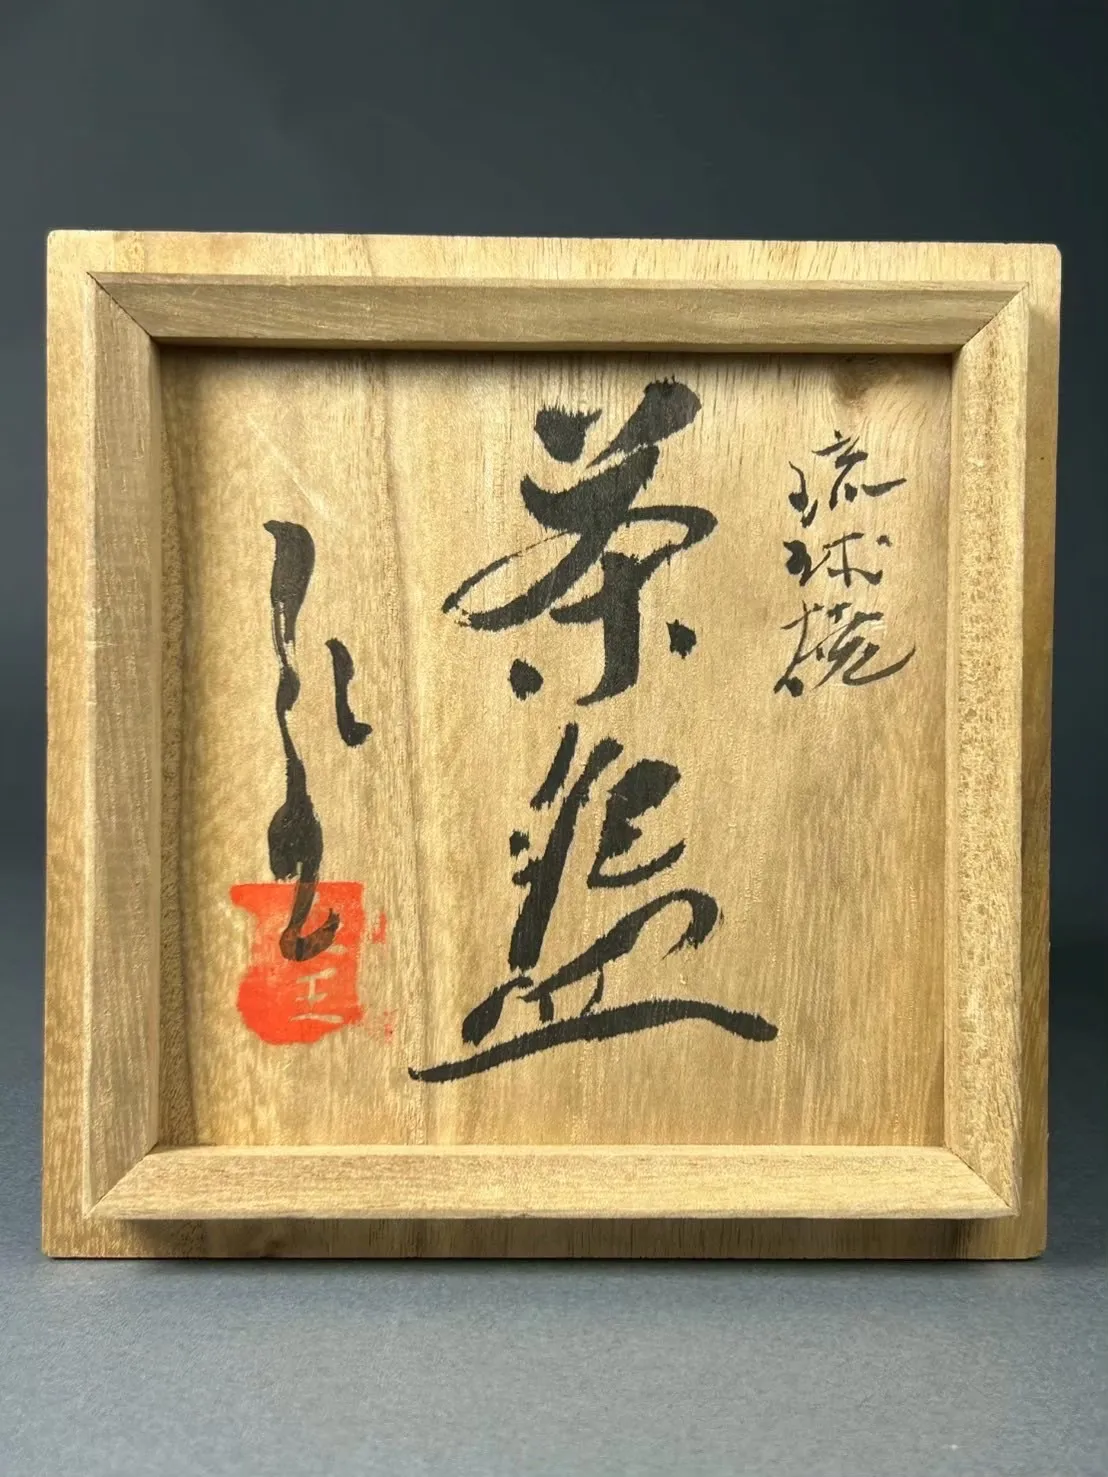 琉球焼
茶盌